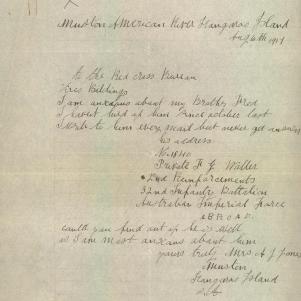 Muston American River Kangaroo Island
Aug 6th 1917
to the Red cross Bureau
I am anxious about my Brother Fred
I havent heard of him since october last
I write to him every mail but never get answer
his address
No 1840
Private F G Waller
2nd Reinforcements
32nd Infantry Battalion
Australian Imperial Force
ABROAD
could you find out if he is well
as I am most anxious about him
yours truly Mrs A J Jones
Muston
Kangaroo Island
S.A